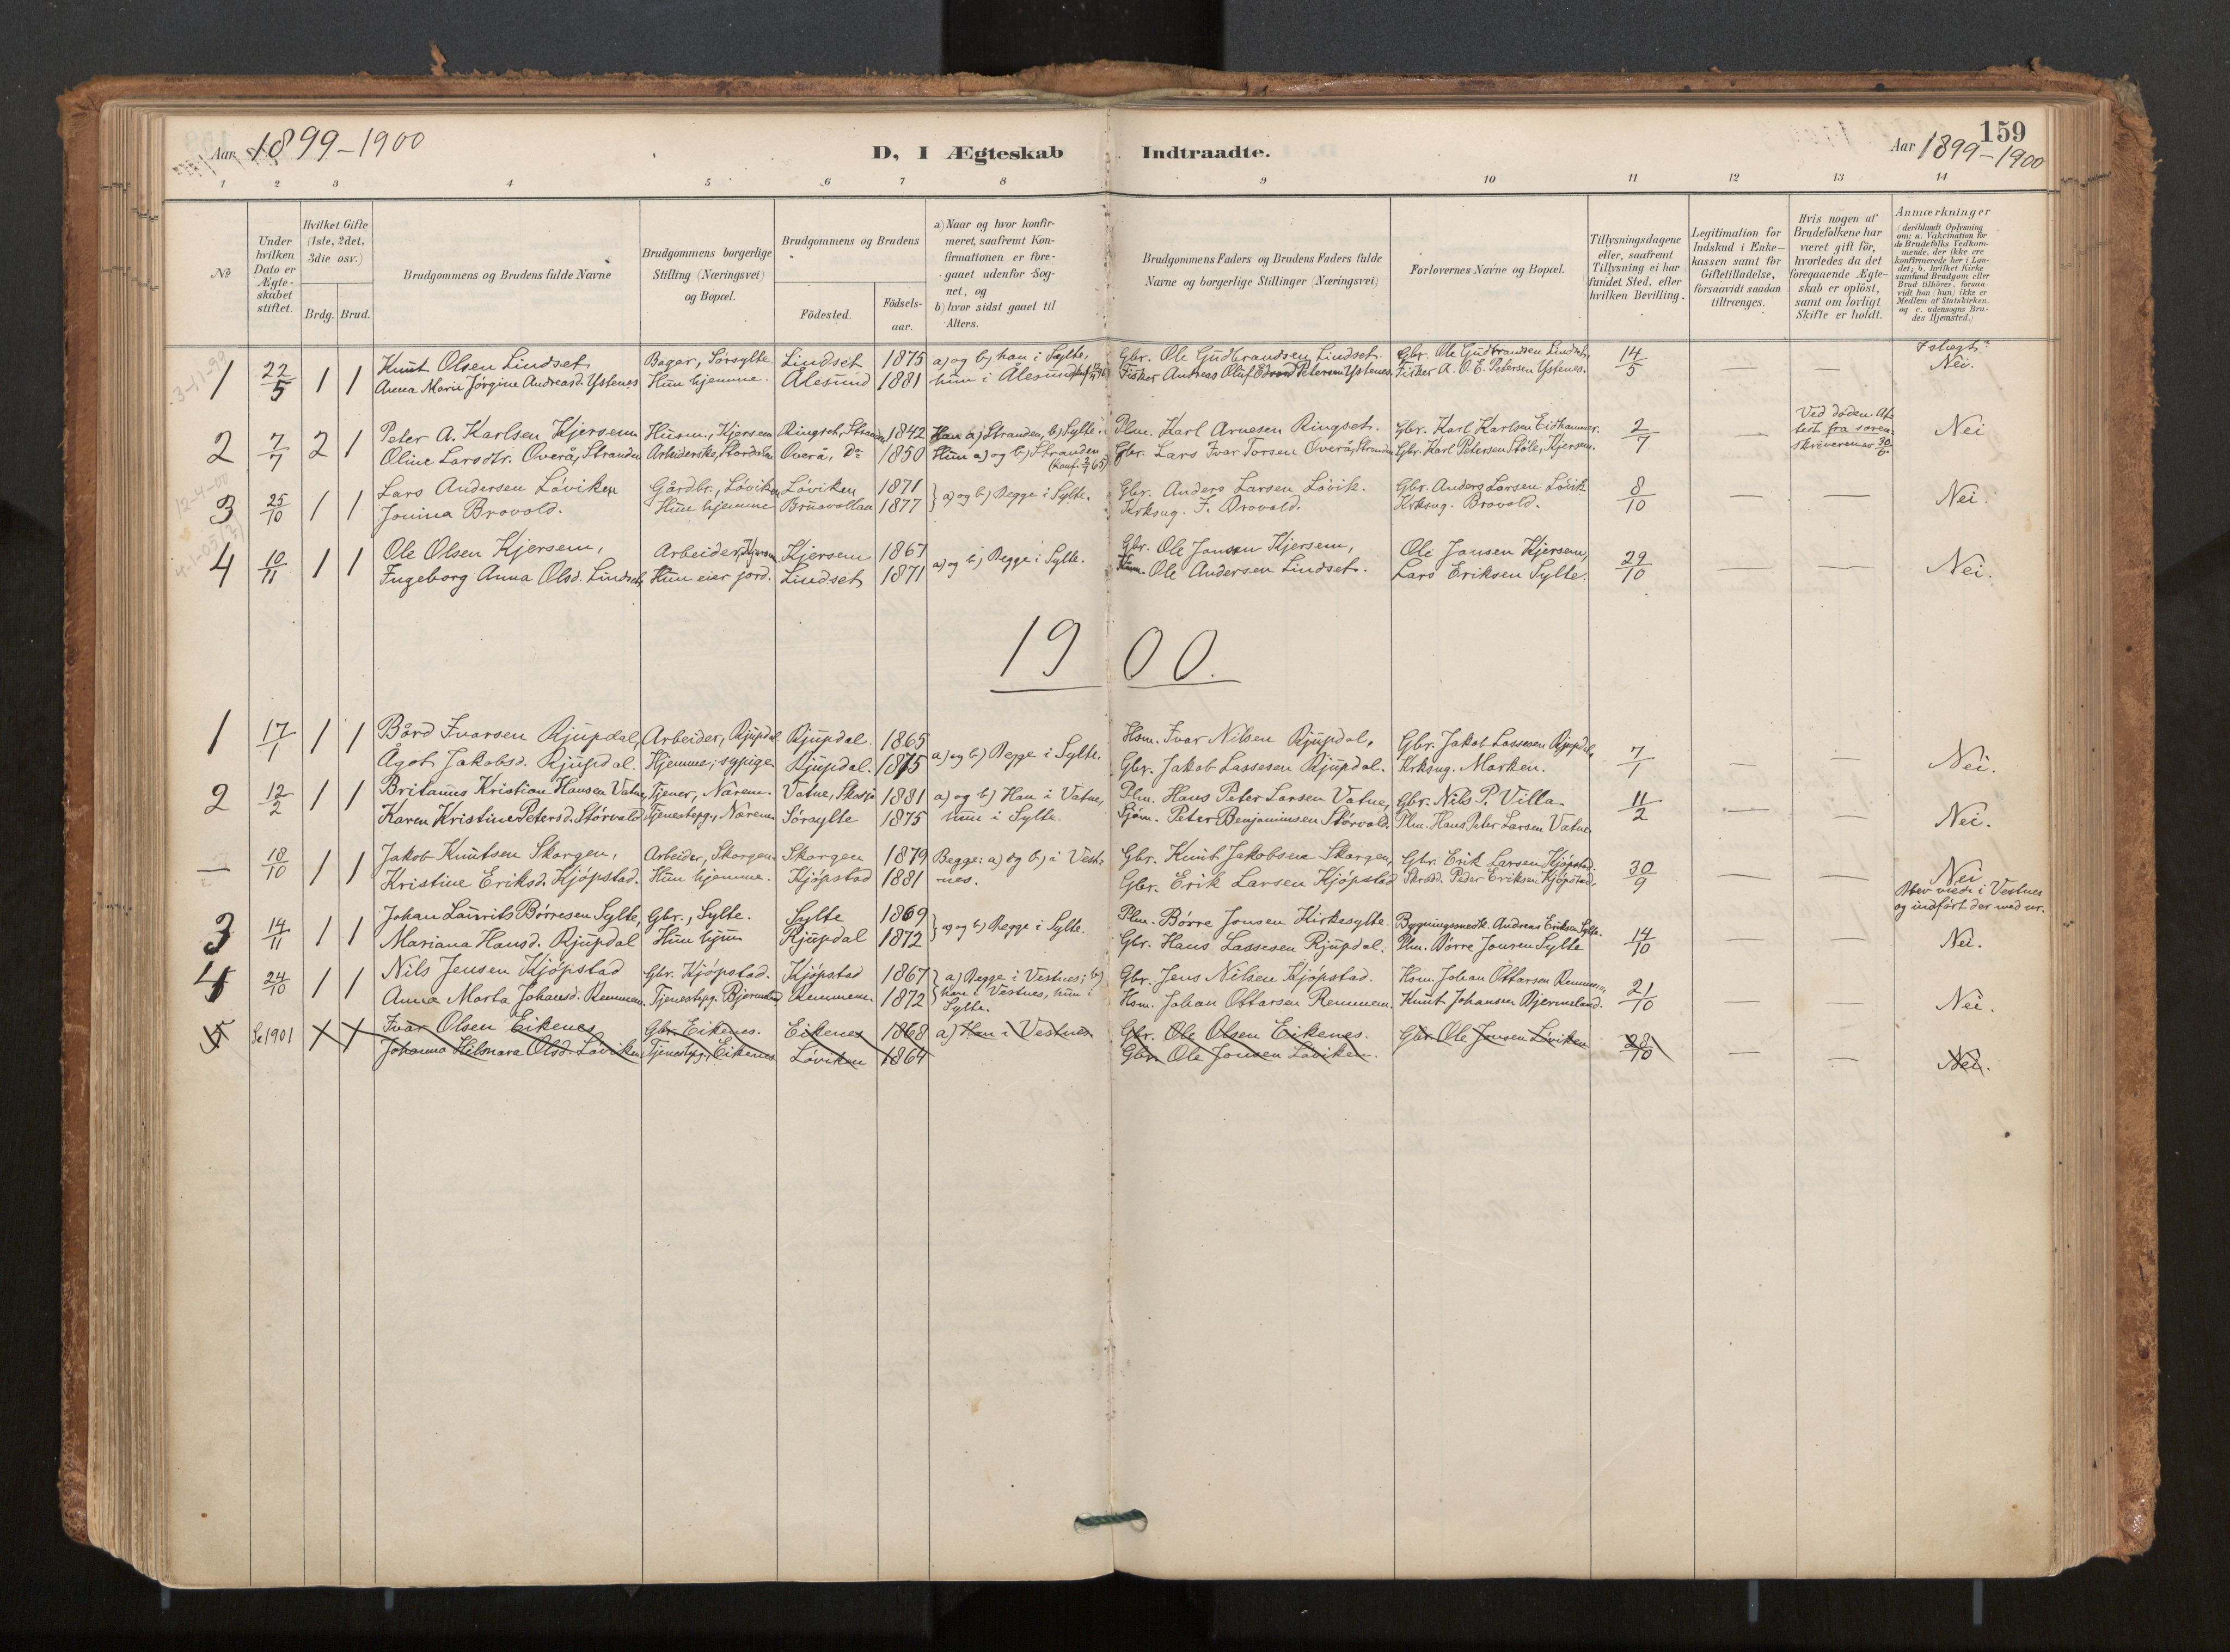 159
Aar 1899-1900
D, I Ægteskab Indtraadte.
Aar 1899-1900
1 2 3 4 5 6 7 8 9 10 11 12 13 14
No
Under hvilken Dato er Ægteskabet stiftet.
Hvilket Gifte (1ste, 2det, 3die osv.)
Brdg. Brud.
Brudgommens og Brudens fulde Navne
Brudgommens borgerlige Stilling (Næringsvei) og Bopæl.
Brudgommens og Brudens
Födested.
Födsels-aar.
a) Naar og hvor konfir-
meret, saafremt Kon-
firmationen er fore-
gaaet udenfor Sog-
net, og
b) hvor sidst gaaet til
Alters.
Brudgommens Faders og Brudens Faders fulde
Navne og borgerlige Stillinger (Næringsvei)
Forlovernes Navne og Bopæl.
Tillysningsdagene
eller, saafremt
Tillysning ei har
fundet Sted, efter
hvilken Bevilling.
Legitimation for
Indskud i Enke-
kassen samt for
Giftetilladelse,
forsaavidt saadan
tiltrænges.
Hvis nogen af
Brudefolkene har
været gift för,
hvorledes da det
foregaaende Ægte-
skab er oplöst,
samt om lovligt
Skifte er holdt.
Anmærkninger
(deriblandt Oplysning
om: a. Vakcination for
de Brudefolks Vedkom-
mende, der ikke ere
konfirmerede her i Lan-
det; b. hvilket Kirke
samfund Brudgom eller
Brud tilhörer, forsaa-
vidt han (hun) ikke er
Medlem af Statskirken.
og c. udensogns Bru-
des Hjemsted.)
1 22/5 1 1 Knut Olsen Lindset, Bager, Sørsylte Lindset 1875 a) og b) han i Sylte, Gbr. Ole Gudbrandsen Lindset. Gbr. Ole Gudbrandsen Lindset, 14/5 — — I slegt?
Anna Marie Jörgine Andreasd. Ystenes Hun hjemme. Ålesund 1881 hun i Ålesund Fisker Andreas Oluf Edvard Petersen Ystenes. Fisker A. O. E. Petersen Ystenes. Nei.
2 7/7 2 1 Peter A. Karlsen Kjersem Husm., Kjersem Ringset, Stranden 1842 Han a) Stranden, b) Sylte. Plm. Karl Arnesen Ringset. Gbr. Karl Karlsen Eidhammer. 2/7 — Ved døden. At-
test fra soren-
skriveren av 30/6 Nei
Oline Larsdtr. Overå, Stranden Arbeiderske, Stordalen Overå, Do 1850 Hun a) og b) Stranden (konf. 2/7 65) Gbr. Lars Ivar Torsen Overå, Stranden Gbr. Karl Petersen Støle, Kjersem.
3 25/10 1 1 Lars Andersen Löviken Gårdbr., Löviken Löviken 1871 } a) og b) Begge i Sylte. Gbr. Anders Larsen Lövik. Gbr. Anders Larsen Lövik 8/10 — — Nei.
Jonina Brovold. Hun hjemme 1877 Krksng. J. Brovold. Krksng. Brovold.
4 10/11 1 1 Ole Olsen Kjersem, Arbeider, Kjersem Kjersem 1867 a) og b) Begge i Sylte. Gbr. Ole Jonsen Kjersem, Ole Jonsen Kjersem, 29/10 — — Nei.
Ingeborg Anna Olsd. Lindset, Hun eier jord. Lindset 1871 Ole Andersen Lindset. Lars Eriksen Sylte.
1900.
1 17/1 1 1 Bård Ivarsen Rjupdal, Arbeider, Rjupdal Rjupdal 1865 a) og b) Begge i Sylte. Hsm. Ivar Nilsen Rjupdal, Gbr. Jakob Lassesen Rjupdal, 7/1 — — Nei.
Ågot Jakobsd. Rjupdal. Hjemme; sypige. Rjupdal. 1875 Gbr. Jakob Lassesen Rjupdal. Krksng. Marken.
2 12/2 1 1 Britanus Kristian Hansen Vatne, Tjener, Nærem. Vatne, Skodje 1881 a) og b) Han i Vatne, Plm. Hans Peter Larsen Vatne, Gbr. Nils P. Villa. 11/2 — — Nei.
Karen Kristine Petersd. Störvold Tjenestepg., Nærem Sörsylte 1875 hun i Sylte. Sjöm. Peter Benjaminsen Störvold. Plm. Hans Peter Larsen Vatne.
— 18/10 1 1 Jakob Knutsen Skorgen, Arbeider, Skorgen. Skorgen 1879 Begge: a) og b) i Vest- Gbr. Knut Jakobsen Skorgen, Gbr. Erik Larsen Kjöpstad. 30/9 — — Nei
Kristine Eriksd. Kjöpstad. Hun hjemme. Kjöpstad 1881 nes. Gbr. Erik Larsen Kjöpstad Skrædd. Peder Eriksen Kjöpstad. Blev viede i Vestnes
og indført der med nr.
3 14/11 1 1 Johan Laurits Börresen Sylte, Gbr., Sylte. Sylte 1869 } a) og b) Begge i Sylte. Plm. Börre Jonsen Kirkesylte. Bygningssnedk. Andreas Eriksen Sylte. 14/10 — — Nei.
Mariana Hansd. Rjupdal Hun hjem Rjupdal 1872 Gbr. Hans Lassesen Rjupdal. Plm. Börre Jonsen Sylte
4 24/10 1 1 Nils Jensen Kjöpstad Gbr. Kjöpstad. Kjöpstad 1867 } a) Begge i Vestnes; b) Gbr. Jens Nilsen Kjöpstad. Hsm. Johan Ottarsen Remmem, 21/10 — — Nei.
Anna Marta Johansd. Remmem Tjenestepg. Remmem 1872 han i Vestnes, hun i Sylte. Hsm. Johan Ottarsen Remmem. Knut Johansen Bjermeland.
5 Se 1901 1 1 Ivar Olsen Eikenes Gbr. Eikenes. Eikenes 1868 a) Han i Vestnes Gbr. Ole Olsen Eikenes. Gbr. Ole Jonsen Löviken 28/10 — — Nei.
Johanna Hilmara Olsd. Löviken Tjenestepg., Eikenes Löviken 1864 Gbr. Ole Jonsen Löviken.